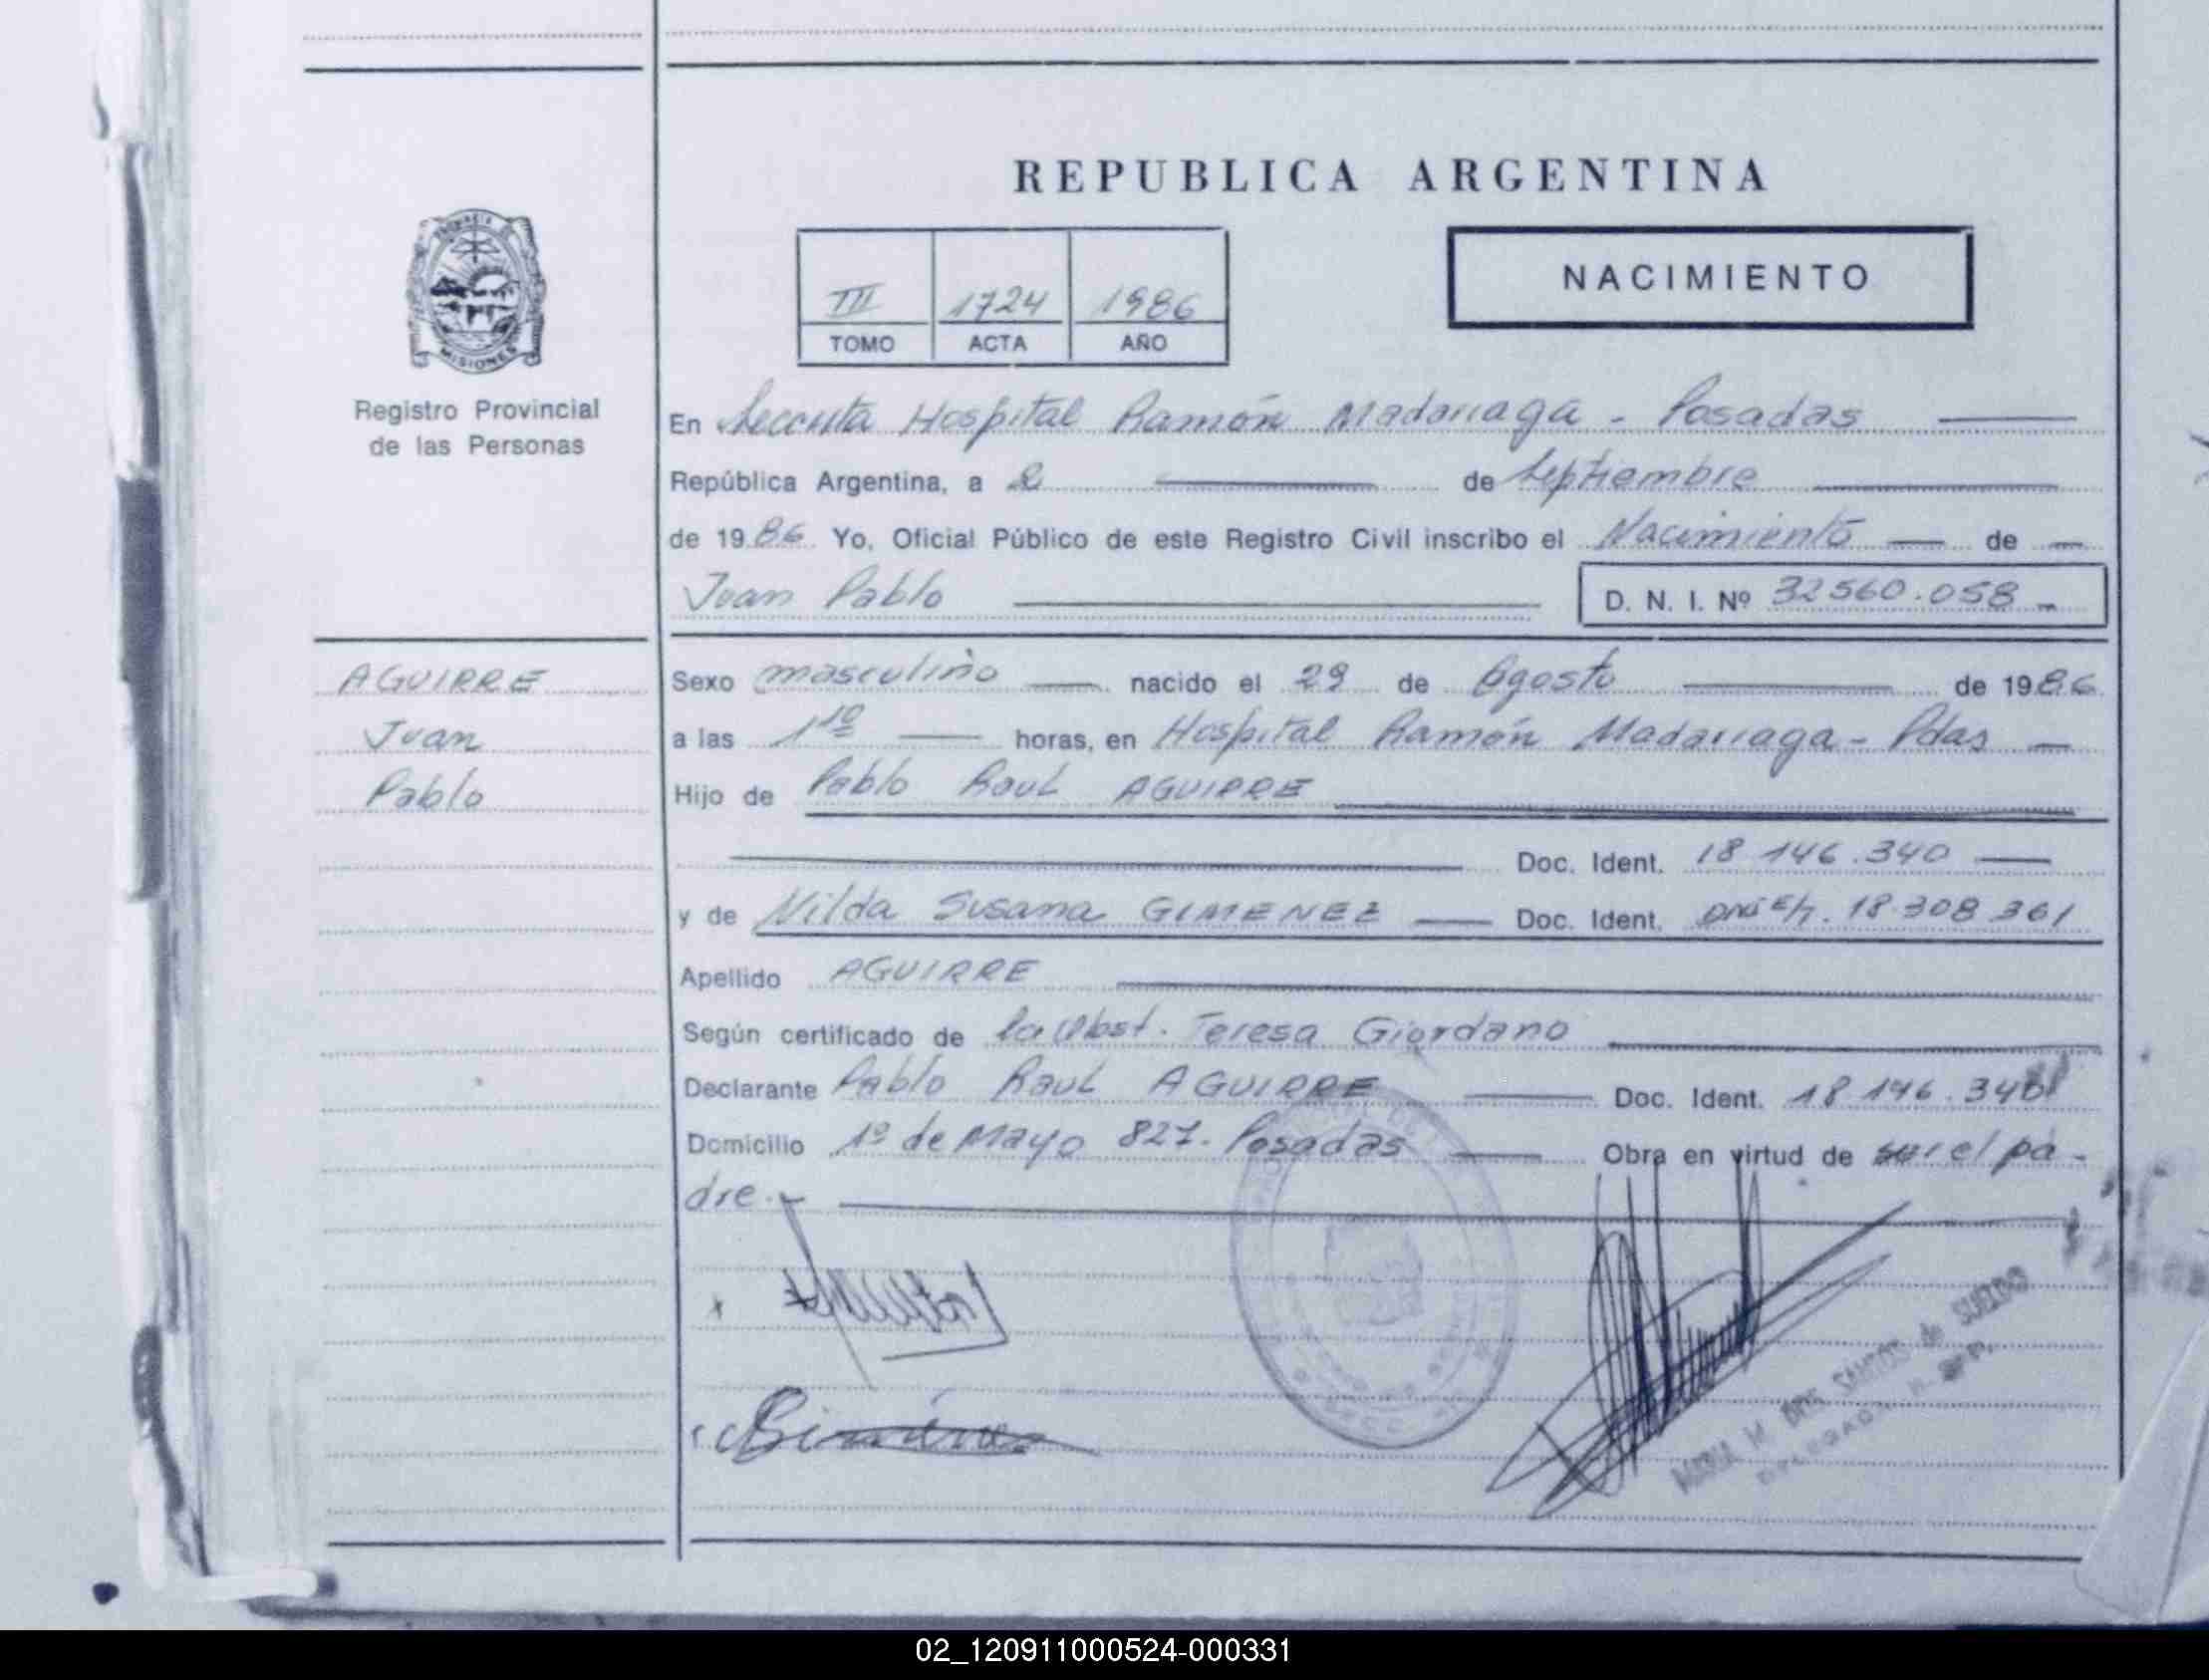 REPUBLICA ARGENTINA
PROVINCIA DE
MISIONES
Registro Provincial
de las Personas
III 1724 1986
TOMO ACTA AÑO
NACIMIENTO
En Hospital Ramón Madariaga - Posadas
República Argentina, a 2 de Septiembre
de 1986 Yo, Oficial Público de este Registro Civil inscribo el Nacimiento de
Juan Pablo D. N. I. Nº 32560.058
AGUIRRE
Juan
Pablo
Sexo masculino nacido el 29 de Agosto de 1986
a las 1¹⁰ horas, en Hospital Ramón Madariaga - Pdas
Hijo de Pablo Raul AGUIRRE
Doc. Ident. 18 146.340
y de Nilda Susana GIMENEZ Doc. Ident. 18.308.361
Apellido AGUIRRE
Según certificado de la Obst. Teresa Giordano
Declarante Pablo Raul AGUIRRE Doc. Ident. 18 146.340
Domicilio 1º de Mayo 827. Posadas Obra en virtud de ser el pa-
dre.-
MARIA SANTOS de
02_120911000524-000331